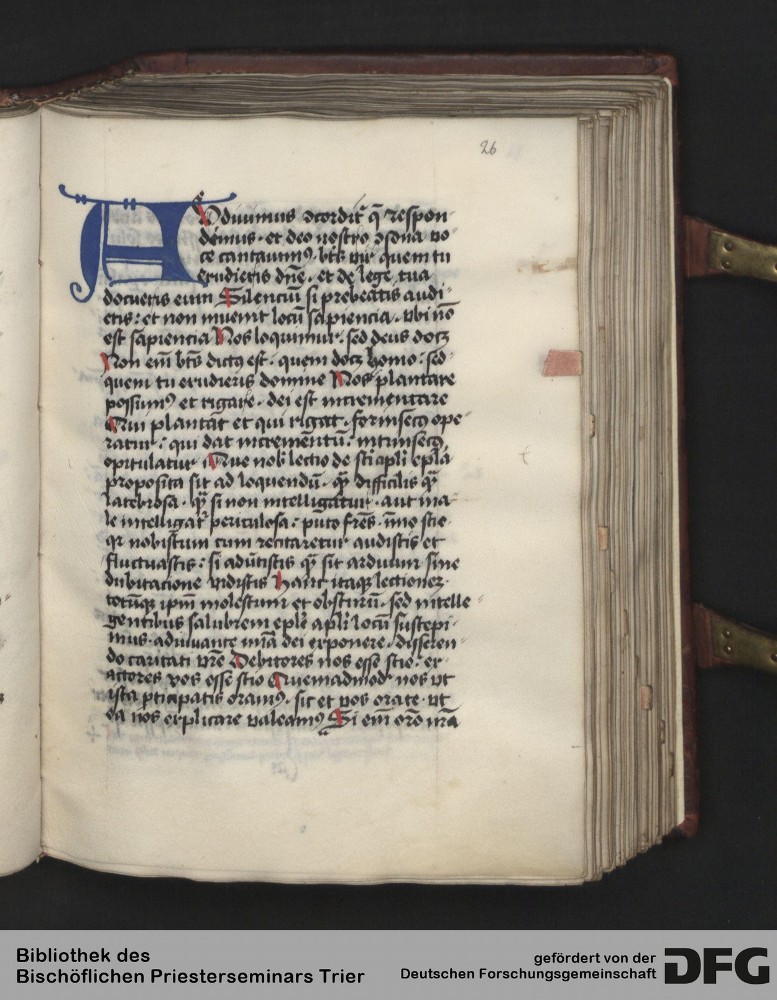 26
ADuiuimus ↄcordit̾ q̄ respon
demus · et deo nostro ↄsona vo
ce cantauimꝰ · bt̄s vir quem tu
erudieris dn̄e · et de lege tua
docueris eum Silenciū si prebeatis audi
etis : et non inuenit locū sapiencia · vbi nō
est sapiencia Nos loquimur · sed deus docꝫ
Non em̄ bt̄s dictꝰ est · quem docꝫ homo : sed
quem tu erudieris domine Nos plantare
possumꝰ et rigare · dei est incrementare
Qui plantat et qui rigat · forinsecꝰ ope
ratur : qui dat incrementū : intrinsecꝰ
opitulatur Que nob̾ lectio de sc̄i apl̄i ep̄la
proposita sit ad loquendū · qͣ difficilis qͣ
latebrosa · qͣ si non intelligatur · aut ma
le intelligat̾ periculosa : puto fr̄es · īmo scio
qꝛ nobiscum cum recitaretur audistis et
fluctuastis : si aduītistis qͣ sit arduum sine
dubitacione vidistis Hanc itaqꝫ lectionem
totūqꝫ ip̄m molestum et obscurū · sed intelle
gentibus salubrem ep̄le apl̄i locū suscepi
mus · adiuuante mīa dei exponere · disseren
do caritati vr̄e Debitores nos esse scio : ex
actores vos esse scio Quemadmodū nos vt
ista ꝑticipatis oramꝰ · sic et vos orate · vt
ea nos explicare valeamꝰ Si em̄ or̄o nr̄a
Bibliothek des
Bischöflichen Priesterseminars Trier
gefördert von der
Deutschen Forschungsgemeinschaft
DFG